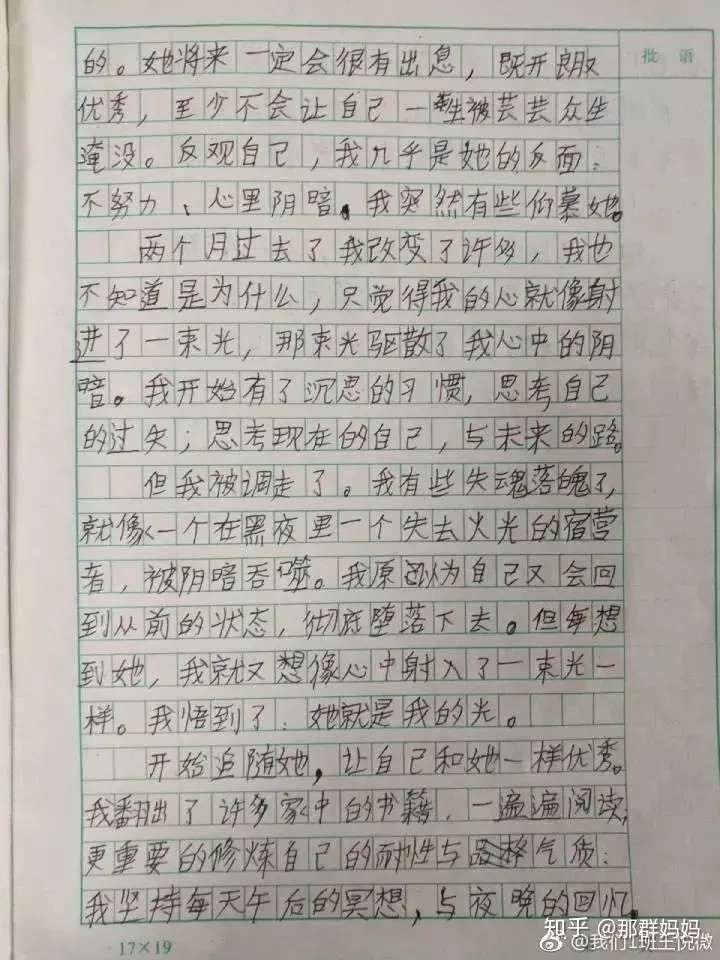 批语
的。她将来一定会很有出息，既开朗又
优秀，至少不会让自己一生被芸芸众生
淹没。反观自己，我几乎是她的反面：
不努力、心里阴暗。我突然有些仰慕她。
两个月过去了我改变了许多，我也
不知道是为什么，只觉得我的心就像射
进了一束光，那束光驱散了我心中的阴
暗。我开始有了沉思的习惯，思考自己
的过失；思考现在的自己，与未来的路。
但我被调走了。我有些失魂落魄了，
就像一个在黑夜里一个失去火光的宿营
者，被阴暗吞噬。我原以为自己又会回
到从前的状态，彻底堕落下去。但每想
到她，我就又想像心中射入了一束光一
样。我悟到了：她就是我的光。
开始追随她，让自己和她一样优秀。
我翻出了许多家中的书籍，一遍遍阅读；
更重要的修炼自己的耐性与品格气质：
我坚持每天午后的冥想，与夜晚的回忆。
17×19
知乎 @那群妈妈
@我们1班主倪微